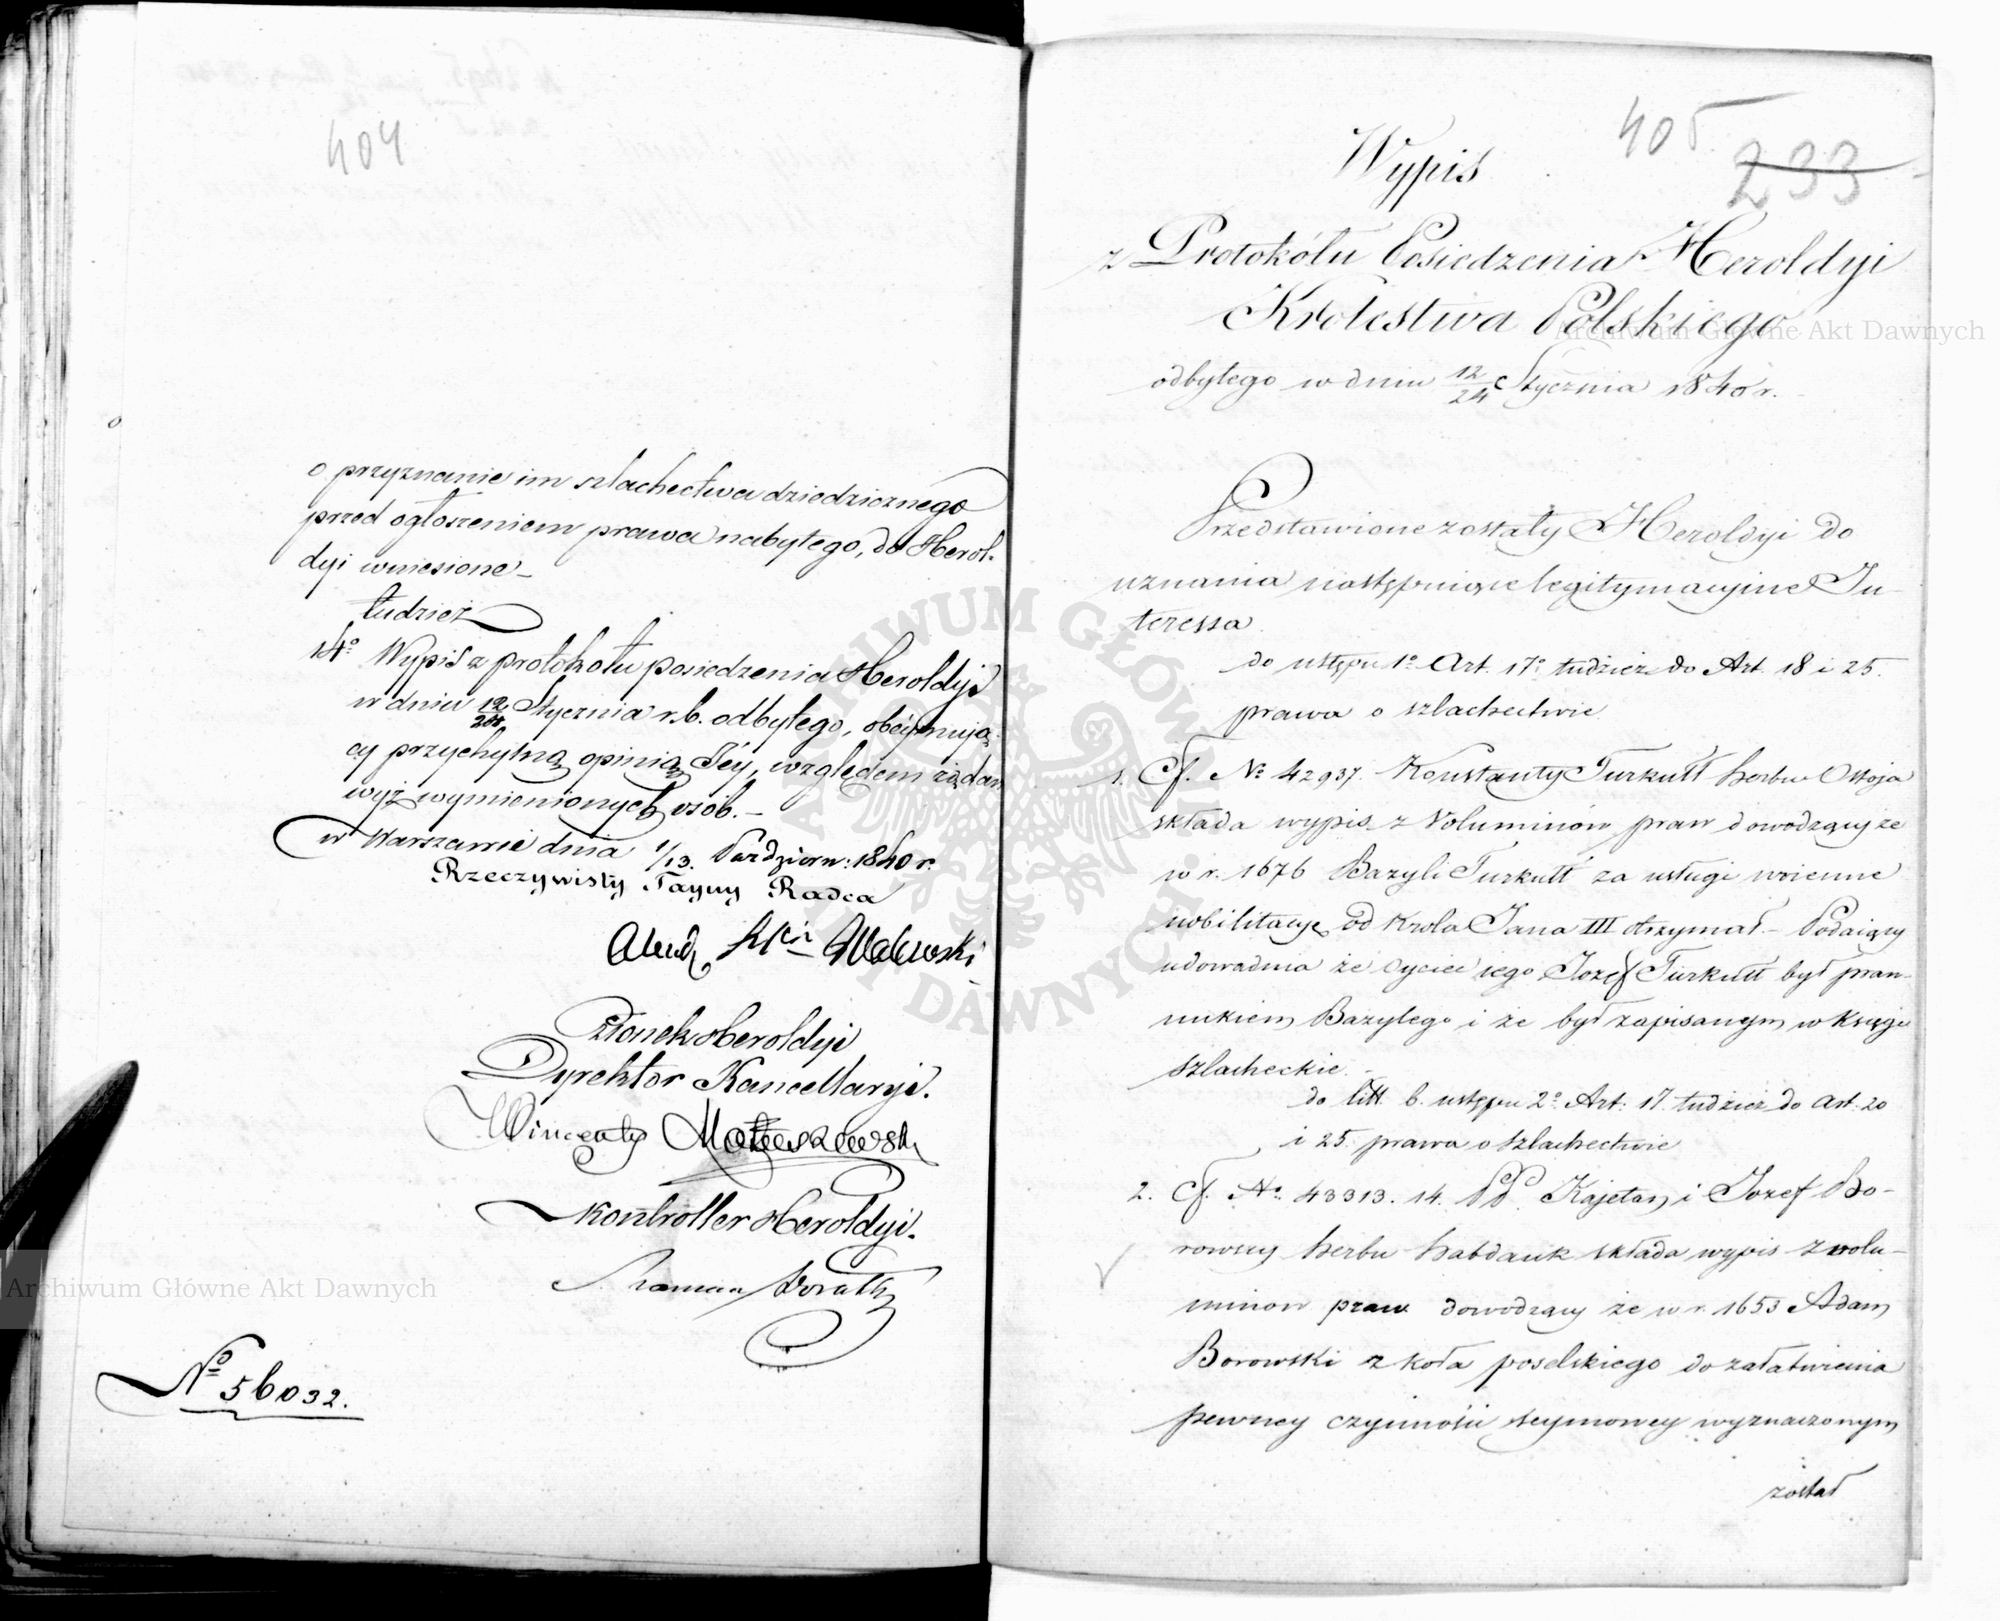 404
o przyznanie im szlachectwa dziedzicznego
przed ogłoszeniem prawa nabytego, do Herol-
dyi wniesione –
tudzież
14o Wypis z protokołu posiedzenia Heroldyi
w dniu 12/24 Stycznia r.b. odbytego, obejmują-
cy przychylną opinią Jéy, względem żądań
wyż wymienionych osób. –
w Warszawie dnia 1/13. Październ: 1840 r.
Rzeczywisty Tayny Radca
Walewski
Członek Heroldyi
Dyrektor Kancellaryi.
Wincenty Matuszewski
Kontroller Heroldyi.
Roman
No 56032.
405
233
Wypis
z Protokółu Posiedzenia Heroldyi
Królestwa Polskiego
odbytego w dniu 12/24 Stycznia 1840 r.
Przedstawione zostały Heroldyi do
uznania następuiące legitymacyine In-
teressa
do ustępu 1o Art. 17o tudzież do Art. 18 i 25.
prawa o szlachectwie
1. Cf. No 42937. Konstanty Turkułł herbu Ostoja
składa wypis z Voluminów praw dowodzący że
w r. 1676 Bazyli Turkułł za usługi woienne
nobilitacyę od Krola Jana III otrzymał – Podaiący
udowadnia że oyciec iego Jozef Turkułł był praw-
nukiem Bazylego i że był zapisanym w Księgi
szlacheckie. –
do litt. b. ustępu 2o Art: 17. tudzież do Art: 20
i 25. prawa o szlachectwie
2. Cf. No. 43313. 14. PP. Kajetan i Jozef Bo-
rowscy herbu Habdank składa wypis z volu-
minow praw dowodzący że w r. 1653 Adam
Borowski z koła poselskiego do załatwienia
pewney czynności seymowey wyznaczonym
został
Archiwum Główne Akt Dawnych
Archiwum Główne Akt Dawnych
ARCHIWUM GŁÓWNE AKT DAWNYCH